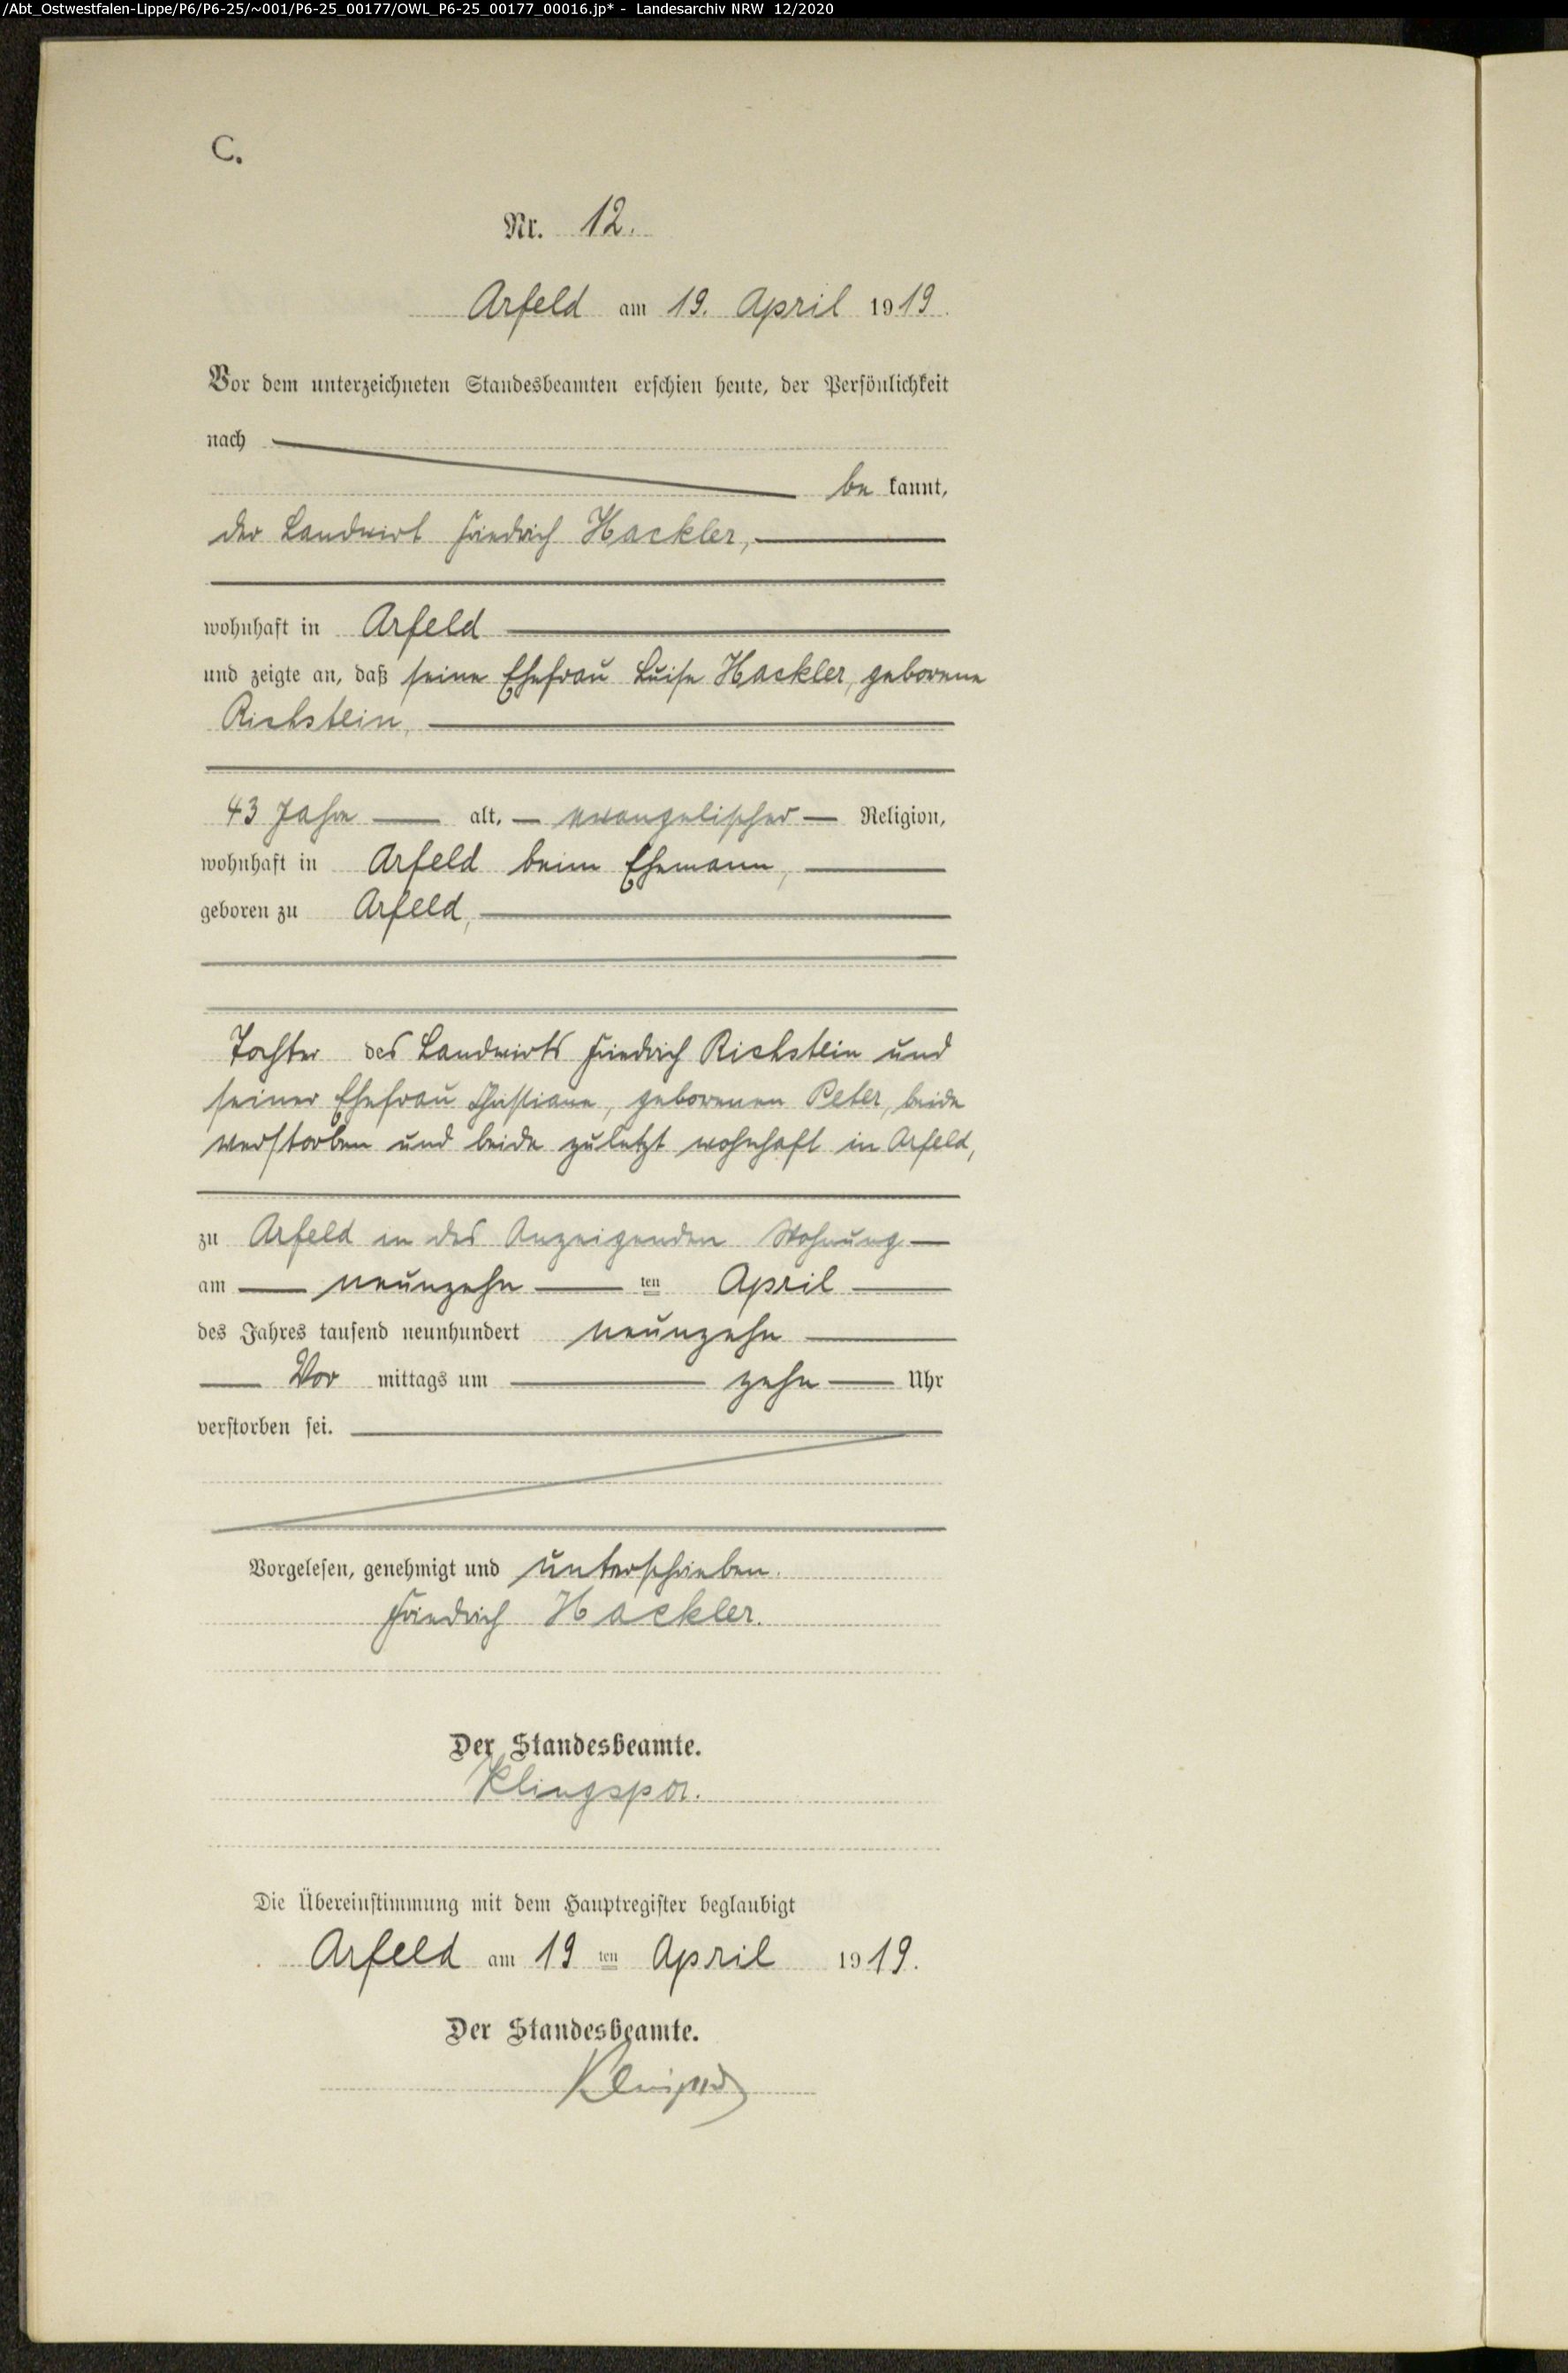 /Abt_Ostwestfalen-Lippe/P6/P6-25/~001/P6-25_00177/OWL_P6-25_00177_00016.jp* - Landesarchiv NRW 12/2020
C.
Nr. 12.
Arfeld am 19. April 1919.
Vor dem unterzeichneten Standesbeamten erschien heute, der Persönlichkeit
nach
be kannt,
der Landwirt Friedrich Hackler,
wohnhaft in Arfeld
und zeigte an, daß seine Ehefrau Luise Hackler, geborene
Richstein,
43 Jahre alt, evangelischer Religion,
wohnhaft in Arfeld beim Ehemann,
geboren zu Arfeld,
Tochter des Landwirts Friedrich Richstein und
seiner Ehefrau Christiane, geborenen Peter, beide
verstorben und beide zuletzt wohnhaft in Arfeld,
zu Arfeld in des Anzeigenden Wohnung
am neunzehn ten April
des Jahres tausend neunhundert neunzehn
Vor mittags um zehn Uhr
verstorben sei.
Vorgelesen, genehmigt und unterschrieben.
Friedrich Hackler.
Der Standesbeamte.
Klingspor.
Die Übereinstimmung mit dem Hauptregister beglaubigt
Arfeld am 19 ten April 1919.
Der Standesbeamte.
Klingspor